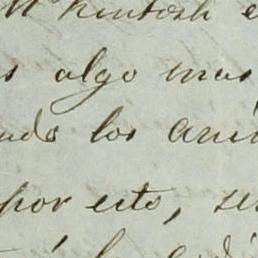 McKintosh e
s algo mas
ando los ani
por esto, se